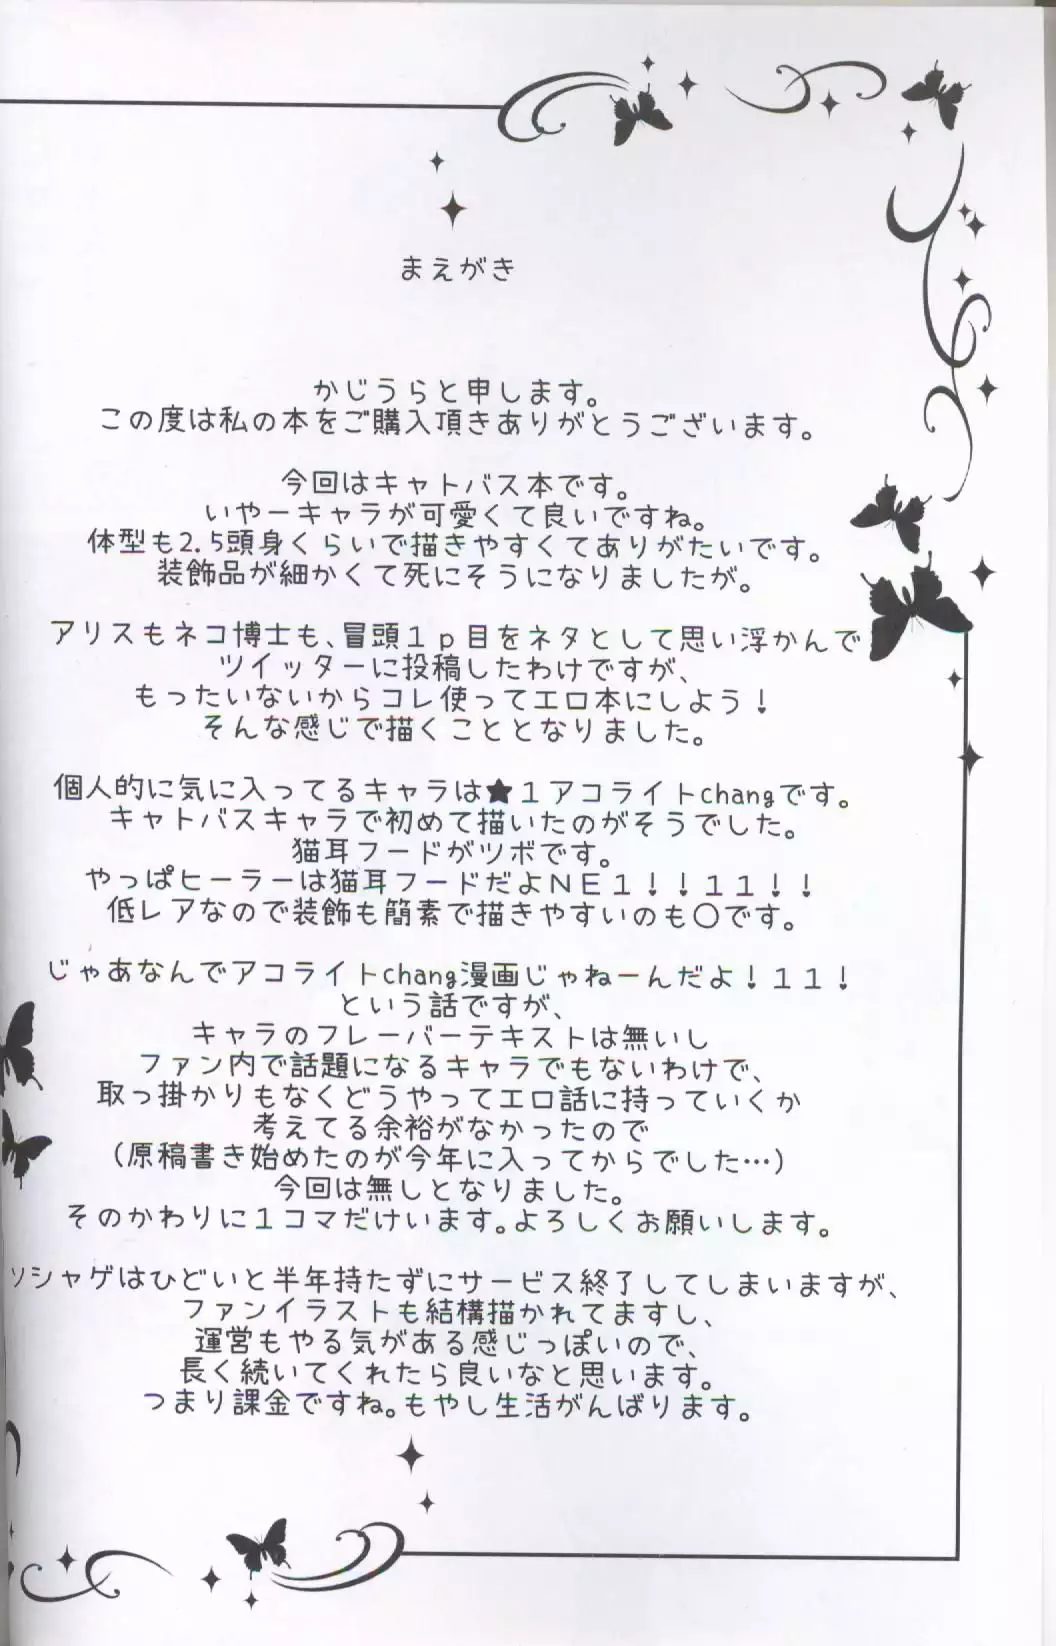 まえがき
かじうらと申します。
この度は私の本をご購入頂きありがとうございます。
今回はキャトバス本です。
いやーキャラが可愛くて良いですね。
体型も2.5頭身くらいで描きやすくてありがたいです。
装飾品が細かくて死にそうになりましたが。
アリスもネコ博士も、冒頭１ｐ目をネタとして思い浮かんで
ツイッターに投稿したわけですが、
もったいないからコレ使ってエロ本にしよう！
そんな感じで描くこととなりました。
個人的に気に入ってるキャラは★１アコライトchangです。
キャトバスキャラで初めて描いたのがそうでした。
猫耳フードがツボです。
やっぱヒーラーは猫耳フードだよＮＥ１！！１１！！
低レアなので装飾も簡素で描きやすいのも〇です。
じゃあなんでアコライトchang漫画じゃねーんだよ！１１！
という話ですが、
キャラのフレーバーテキストは無いし
ファン内で話題になるキャラでもないわけで、
取っ掛かりもなくどうやってエロ話に持っていくか
考えてる余裕がなかったので
（原稿書き始めたのが今年に入ってからでした…）
今回は無しとなりました。
そのかわりに１コマだけいます。よろしくお願いします。
ソシャゲはひどいと半年持たずにサービス終了してしまいますが、
ファンイラストも結構描かれてますし、
運営もやる気がある感じっぽいので、
長く続いてくれたら良いなと思います。
つまり課金ですね。もやし生活がんばります。